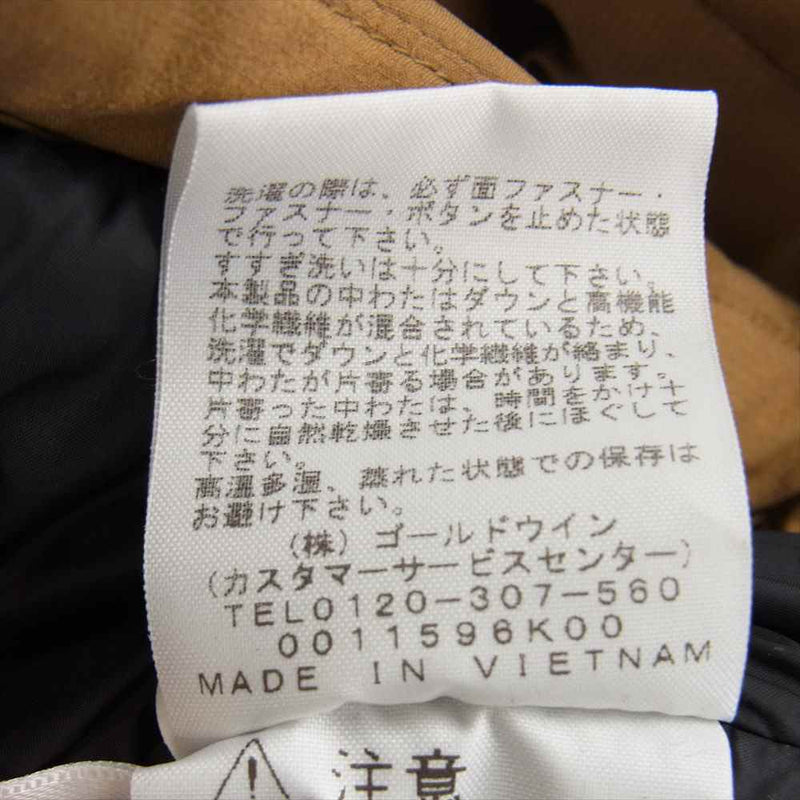 洗濯の際は、必ず面ファスナー・
ファスナー・ボタンを止めた状態
で行って下さい。
すすぎ洗いは十分にして下さい。
本製品の中わたはダウンと高機能
化学繊維が混合されているため、
洗濯でダウンと化学繊維が絡まり、
中わたが片寄る場合があります。
片寄った中わたは、時間をかけ十
分に自然乾燥させた後にほぐして
下さい。
高温多湿、蒸れた状態での保存は
お避け下さい。
(株)ゴールドウイン
(カスタマーサービスセンター)
TEL0120-307-560
0011596K00
MADE IN VIETNAM
注意